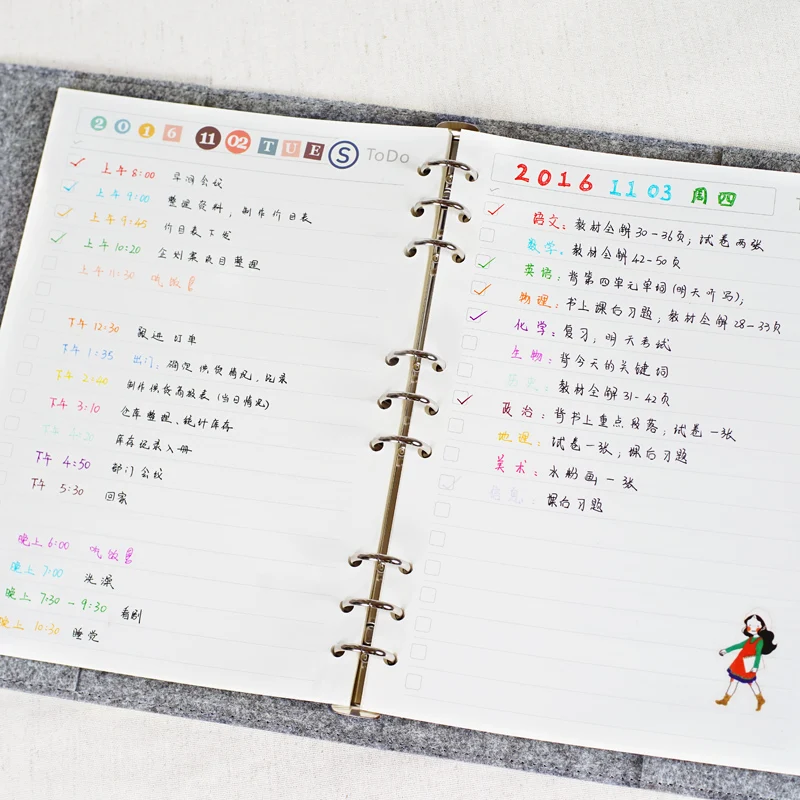 2016 11 02 TUES S ToDo
上午 8:00 早间会议
上午 9:00 整理资料，制作价目表
上午 9:45 价目表下发
上午 10:20 企划案数目整理
上午 11:30 吃饭
下午 12:30 跟进订单
下午 1:35 出门：确定供货情况，记录
下午 2:40 制作供货商报表（当日情况）
下午 3:10 仓库整理、统计库存
下午 4:20 库存记录入册
下午 4:50 部门会议
下午 5:30 回家
晚上 6:00 吃饭
晚上 7:00 洗澡
晚上 7:30 - 9:30 看剧
晚上 10:30 睡觉
2016 11 03 周四
语文：教材全解30-36页；试卷两张
数学：教材全解42-50页
英语：背第四单元单词（明天听写）；
物理：书上课后习题；教材全解28-33页
化学：复习，明天考试
生物：背今天的关键词
历史：教材全解31-42页
政治：背书上重点段落；试卷一张
地理：试卷一张；课后习题
美术：水粉画一张
信息：课后习题